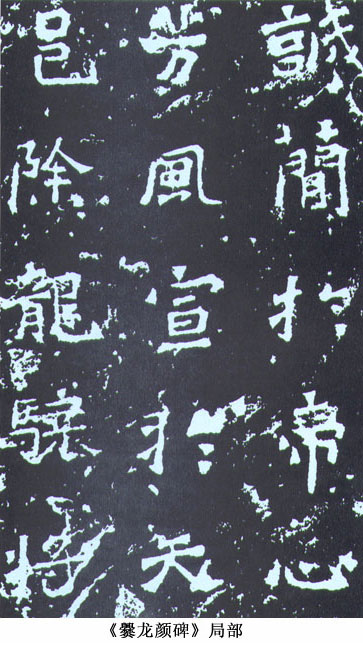 誠簡於帝心
芳風宣於天
邑除龍驤將
《爨龙颜碑》局部